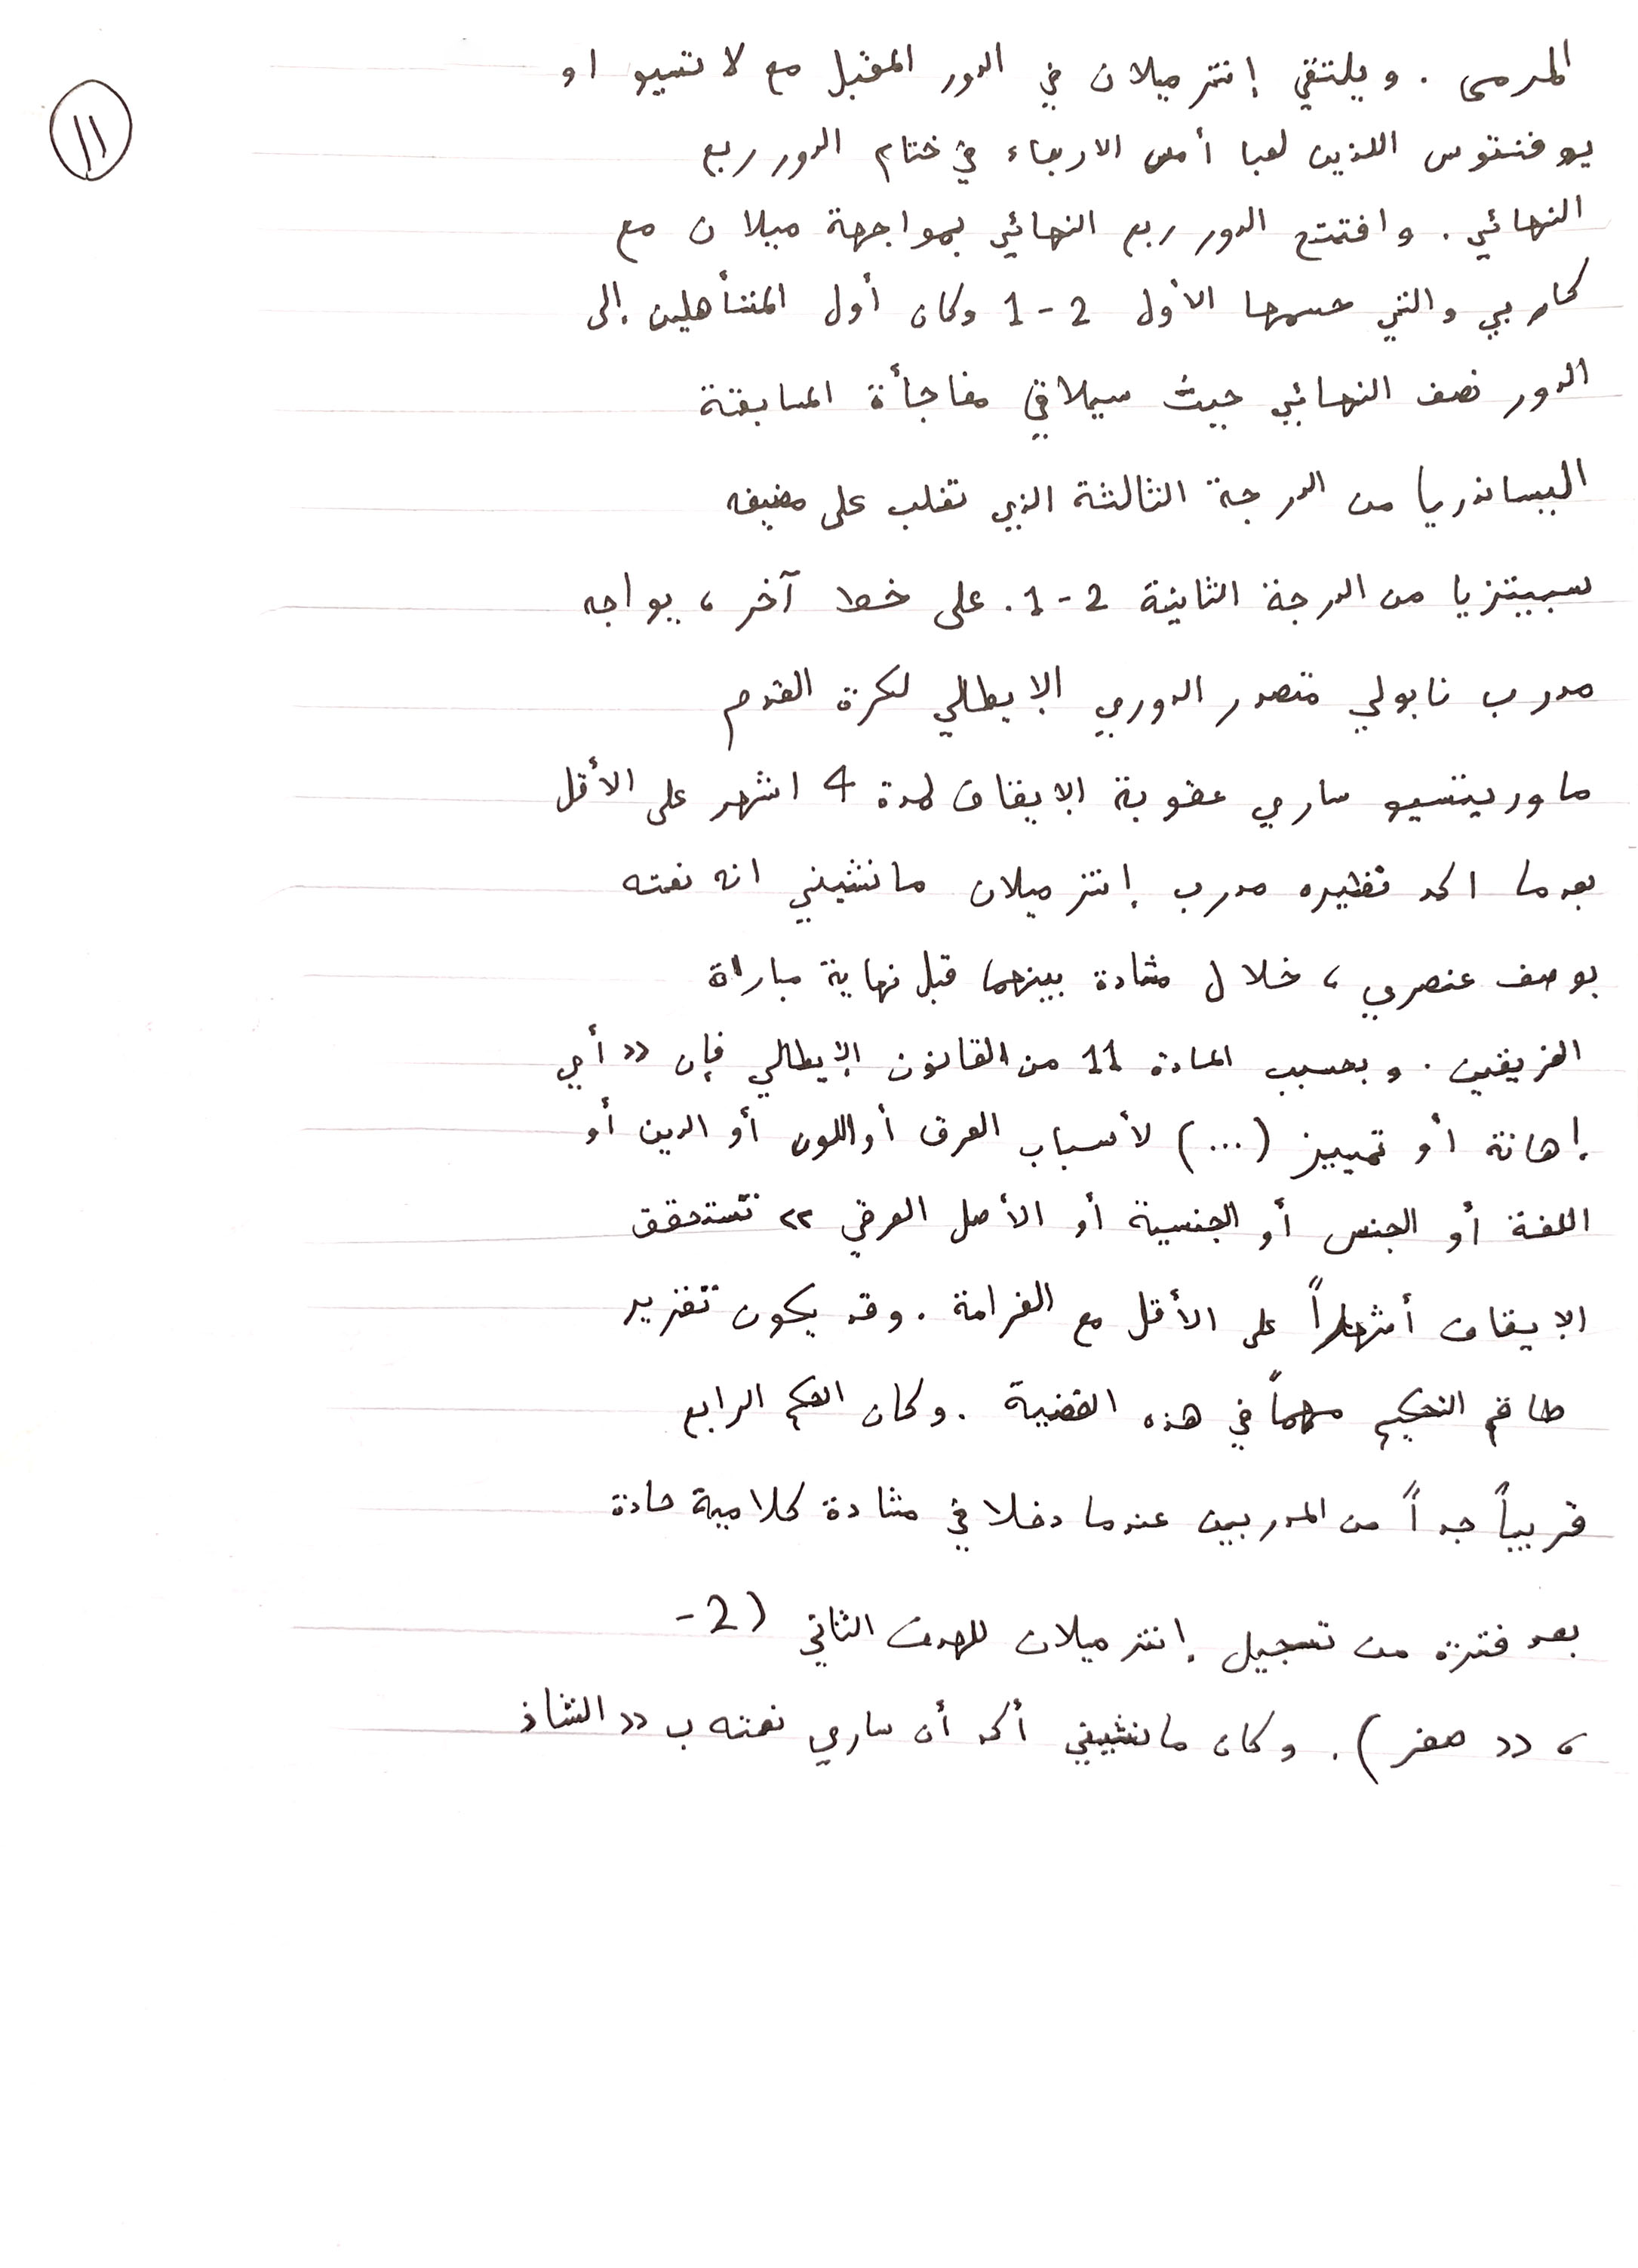 11
المرمى . ويلتقي إنتر ميلان في الدور المقبل مع لاتسيو او
يوفنتوس اللذين لعبا أمس الاربعاء في ختام الدور ربع
النهائي . وافتتح الدور ربع النهائي بمواجهة ميلان مع
كاربي والتي حسمها الأول 2 - 1 وكان أول المتأهلين إلى
الدور نصف النهائي حيث سيلاقي مفاجأة المسابقة
اليساندريا من الدرجة الثالثة الذي تغلب على مضيفه
سبيتزيا من الدرجة الثانية 2 - 1 . على خط آخر ، يواجه
مدرب نابولي متصدر الدوري الإيطالي لكرة القدم
ماوريتسيو ساري عقوبة الإيقاف لمدة 4 اشهر على الأقل
بعدما اكد نظيره مدرب إنتر ميلان مانشيني انه نعته
بوصف عنصري ، خلال مشادة بينهما قبل نهاية مباراة
الفريقين . وبحسب المادة 11 من القانون الإيطالي فإن « أي
إهانة أو تمييز ( ... ) لأسباب العرق أو اللون أو الدين أو
اللغة أو الجنس أو الجنسية أو الأصل العرقي » تستحق
الإيقاف أشهراً على الأقل مع الغرامة . وقد يكون تقرير
طاقم التحكيم مهماً في هذه القضية . وكان الحكم الرابع
قريباً جداً من المدربين عندما دخلا في مشادة كلامية حادة
بعد فترة من تسجيل إنتر ميلان للهدف الثاني ( 2 -
، « صفر ) . وكان مانشيني أكد أن ساري نعته ب « الشاذ